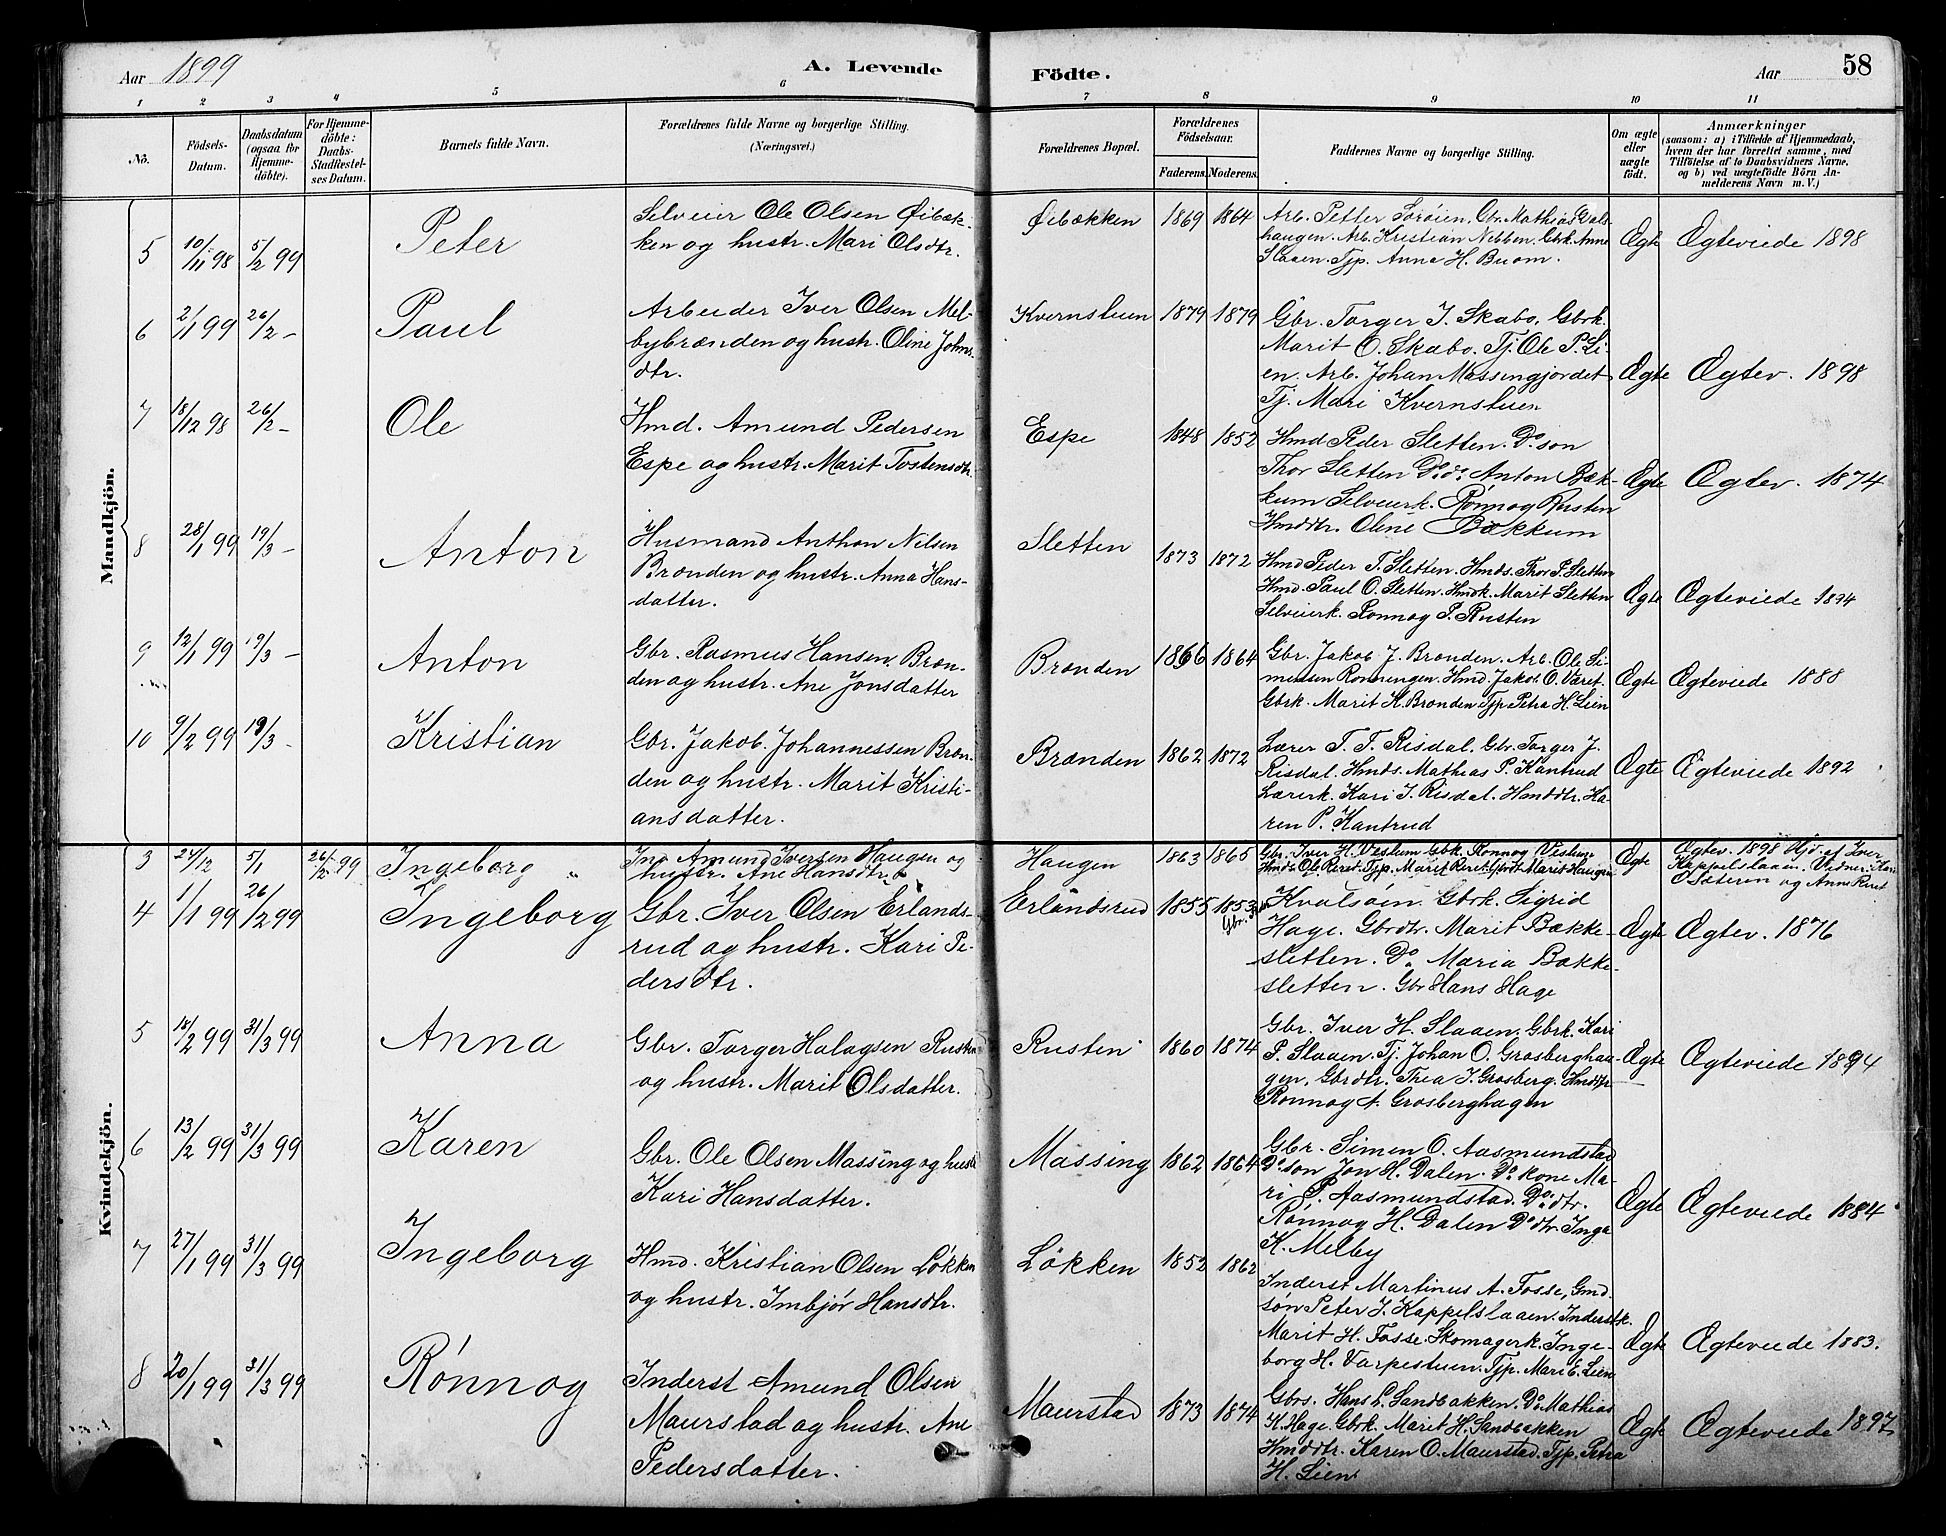 Aar 1899
A. Levende
Födte.
Aar
58
1 2 3 4 5 6 7 8 9 10 11
No.
Födsels-
Datum.
Daabsdatum
(ogsaa for
Hjemme-
döbte).
For Hjemme-
döbte:
Daabs-
Stadfæstel-
ses Datum.
Barnets fulde Navn.
Forældrenes fulde Navne og borgerlige Stilling.
(Næringsvei.)
Forældrenes Bopæl.
Forældrenes
Födselsaar.
Faderens. Moderens.
Faddernes Navne og borgerlige Stilling.
Om ægte
eller
uægte
födt.
Anmærkninger
(saasom: a) i Tilfælde af Hjemmedaab,
hvem der har forrettet samme, med
Tilföielse af to Daabsvidners Navne,
og b) ved uægtefödte Börn An-
melderens Navn m. V.)
Mandkjön.
5 10/11 98 5/2 99 Peter
Selveier Ole Olsen Øibæk-
ken og hustr. Mari Olsdtr.
Øibækken 1869 1864
Arb. Petter Sorøien. Gbr. Mathias
haugen. Arb. Kristian Nibben. Gbrk. Anne
Slaaen. Tjp. Anna H. Buom.
Ægte Ægteviede 1898
6 2/1 99 26/2 – Paul
Arbeider Iver Olsen Mel-
bybrænden og hustr. Oline Johns-
dtr.
Kvernstuen 1879 1879
Gbr. Torger I. Skabo. Gbrk.
Marit O. Skabo. Tj. Ole P. Li-
en. Arb. Johan Massingjordet
Tj. Mari Kvernstuen
Ægte Ægtev. 1898
7 18/12 98 26/2 – Ole
Hmd. Amund Pedersen
Espe og hustr. Marit Tostensdtr.
Espe 1848 1852
Hmd Peder Sletten. Do. søn
Thor Sletten Do. do. Anton Bæk-
kum Selveierk. Rønnog Rusten
Hmddtr. Oline Bækkum
Ægte Ægtev. 1874
8 28/1 99 19/3 – Anton
Husmand Anthon Nilsen
Brænden og hustr. Anna Hans-
datter.
Sletten 1873 1872
Hmd Peder T. Sletten. Hmds. Thor P. Sletten
Hmd. Paul O. Sletten. Hmdk. Marit Sletten
Selveierk. Rønnog P. Rusten
Ægte Ægteviede 1894
9 12/1 99 19/3 – Anton
Gbr. Rasmus Hansen Bræn-
den og hustr. Ane Jonsdatter
Brænden 1866 1864
Gbr. Jakob J. Brænden. Arb. Ole Si-
mensen Rønningen. Hmd. Jakob O.
Gbrk. Marit K. Brænden Tjp. Petra H. Lien
Ægte Ægteviede 1888
10 9/2 99 19/3 – Kristian
Gbr. Jakob Johannessen Bræn-
den og hustr. Marit Kristi-
ansdatter.
Brænden 1862 1872
Lærer T. T. Risdal. Gbr. Torger J.
Risdal. Hmds. Mathias P. Kantrud
Lærerk. Kari J. Risdal. Hmddtr. Ka-
ren P. Kantrud
Ægte Ægteviede 1892
Kvindekjön.
3 24/12 5/1 26/2 99 Ingeborg
Ind. Amund Iversen Haugen og
hustr. Ane Hansdtr.
Haugen 1863 1865
Gbr. Iver H. Veslum Gbrk. Rønnog Veslum
Hmds. Ole Riret. Tjp. Marit Riret. Marit Haugen
Ægte Ægtev. 1898 Hjd. af Iver
Kappelslaaen. Vidner:
O. Sæteren og Anne Riret
4 1/1 99 26/2 99 Ingeborg
Gbr. Iver Olsen Erlands-
rud og hustr. Kari Pe-
dersdtr.
Erlandsrud 1855 1853
Gbr. Kvalsøien. Gbrk. Sigrid
Hage. Gbrdtr. Marit Bække-
sletten. Do. Maria Bække-
sletten. Gbr Hans Hage
Ægte Ægtev. 1876
5 18/2 99 31/3 99 Anna
Gbr. Torger Halagsen Rusten
og hustr. Marit Olsdatter.
Rusten 1860 1874
Gbr. Iver H. Slaaen. Gbrk. Kari
P. Slaaen. Tj. Johan O. Grosberghau-
gen. Gbrdtr. Thea J. Grosberg. Hmddtr
Rønnog A. Grosberghagen
Ægte Ægteviede 1894
6 13/2 99 31/3 99 Karen
Gbr. Ole Olsen Massing og hustr.
Kari Hansdatter.
Massing 1862 1864
Gbr. Simen O. Aasmundstad
Do. søn Jon H. Dalen. Do. kone Ma-
ri P. Aasmundstad. Do. dtr.
Rønnog H. Dalen Do. dtr. Inga
K. Melby
Ægte Ægteviede 1884
7 27/1 99 31/3 99 Ingeborg
Hmd. Kristian Olsen Løkken
og hustr. Imbjør Hansdtr.
Løkken 1852 1862
Inderst Martinus A. Fosse, Gmd.
søn Peter J. Kappelslaaen. Inderstk.
Marit H. Fosse. Skomagerk. Inge-
borg H. Varpestuen. Tjp. Mari E. Lien
Ægte Ægteviede 1883.
8 20/1 99 31/3 99 Rønnog
Inderst Amund Olsen
Maurstad og hustr. Ane
Pedersdatter.
Maurstad 1873 1874
Gbrs. Hans L. Sandbakken. Do. Mathias
K. Hage. Gbrk. Marit H. Sandbakken
Hmddtr. Karen O. Maurstad. Tjp. Petra
H. Lien
Ægte Ægteviede 1897